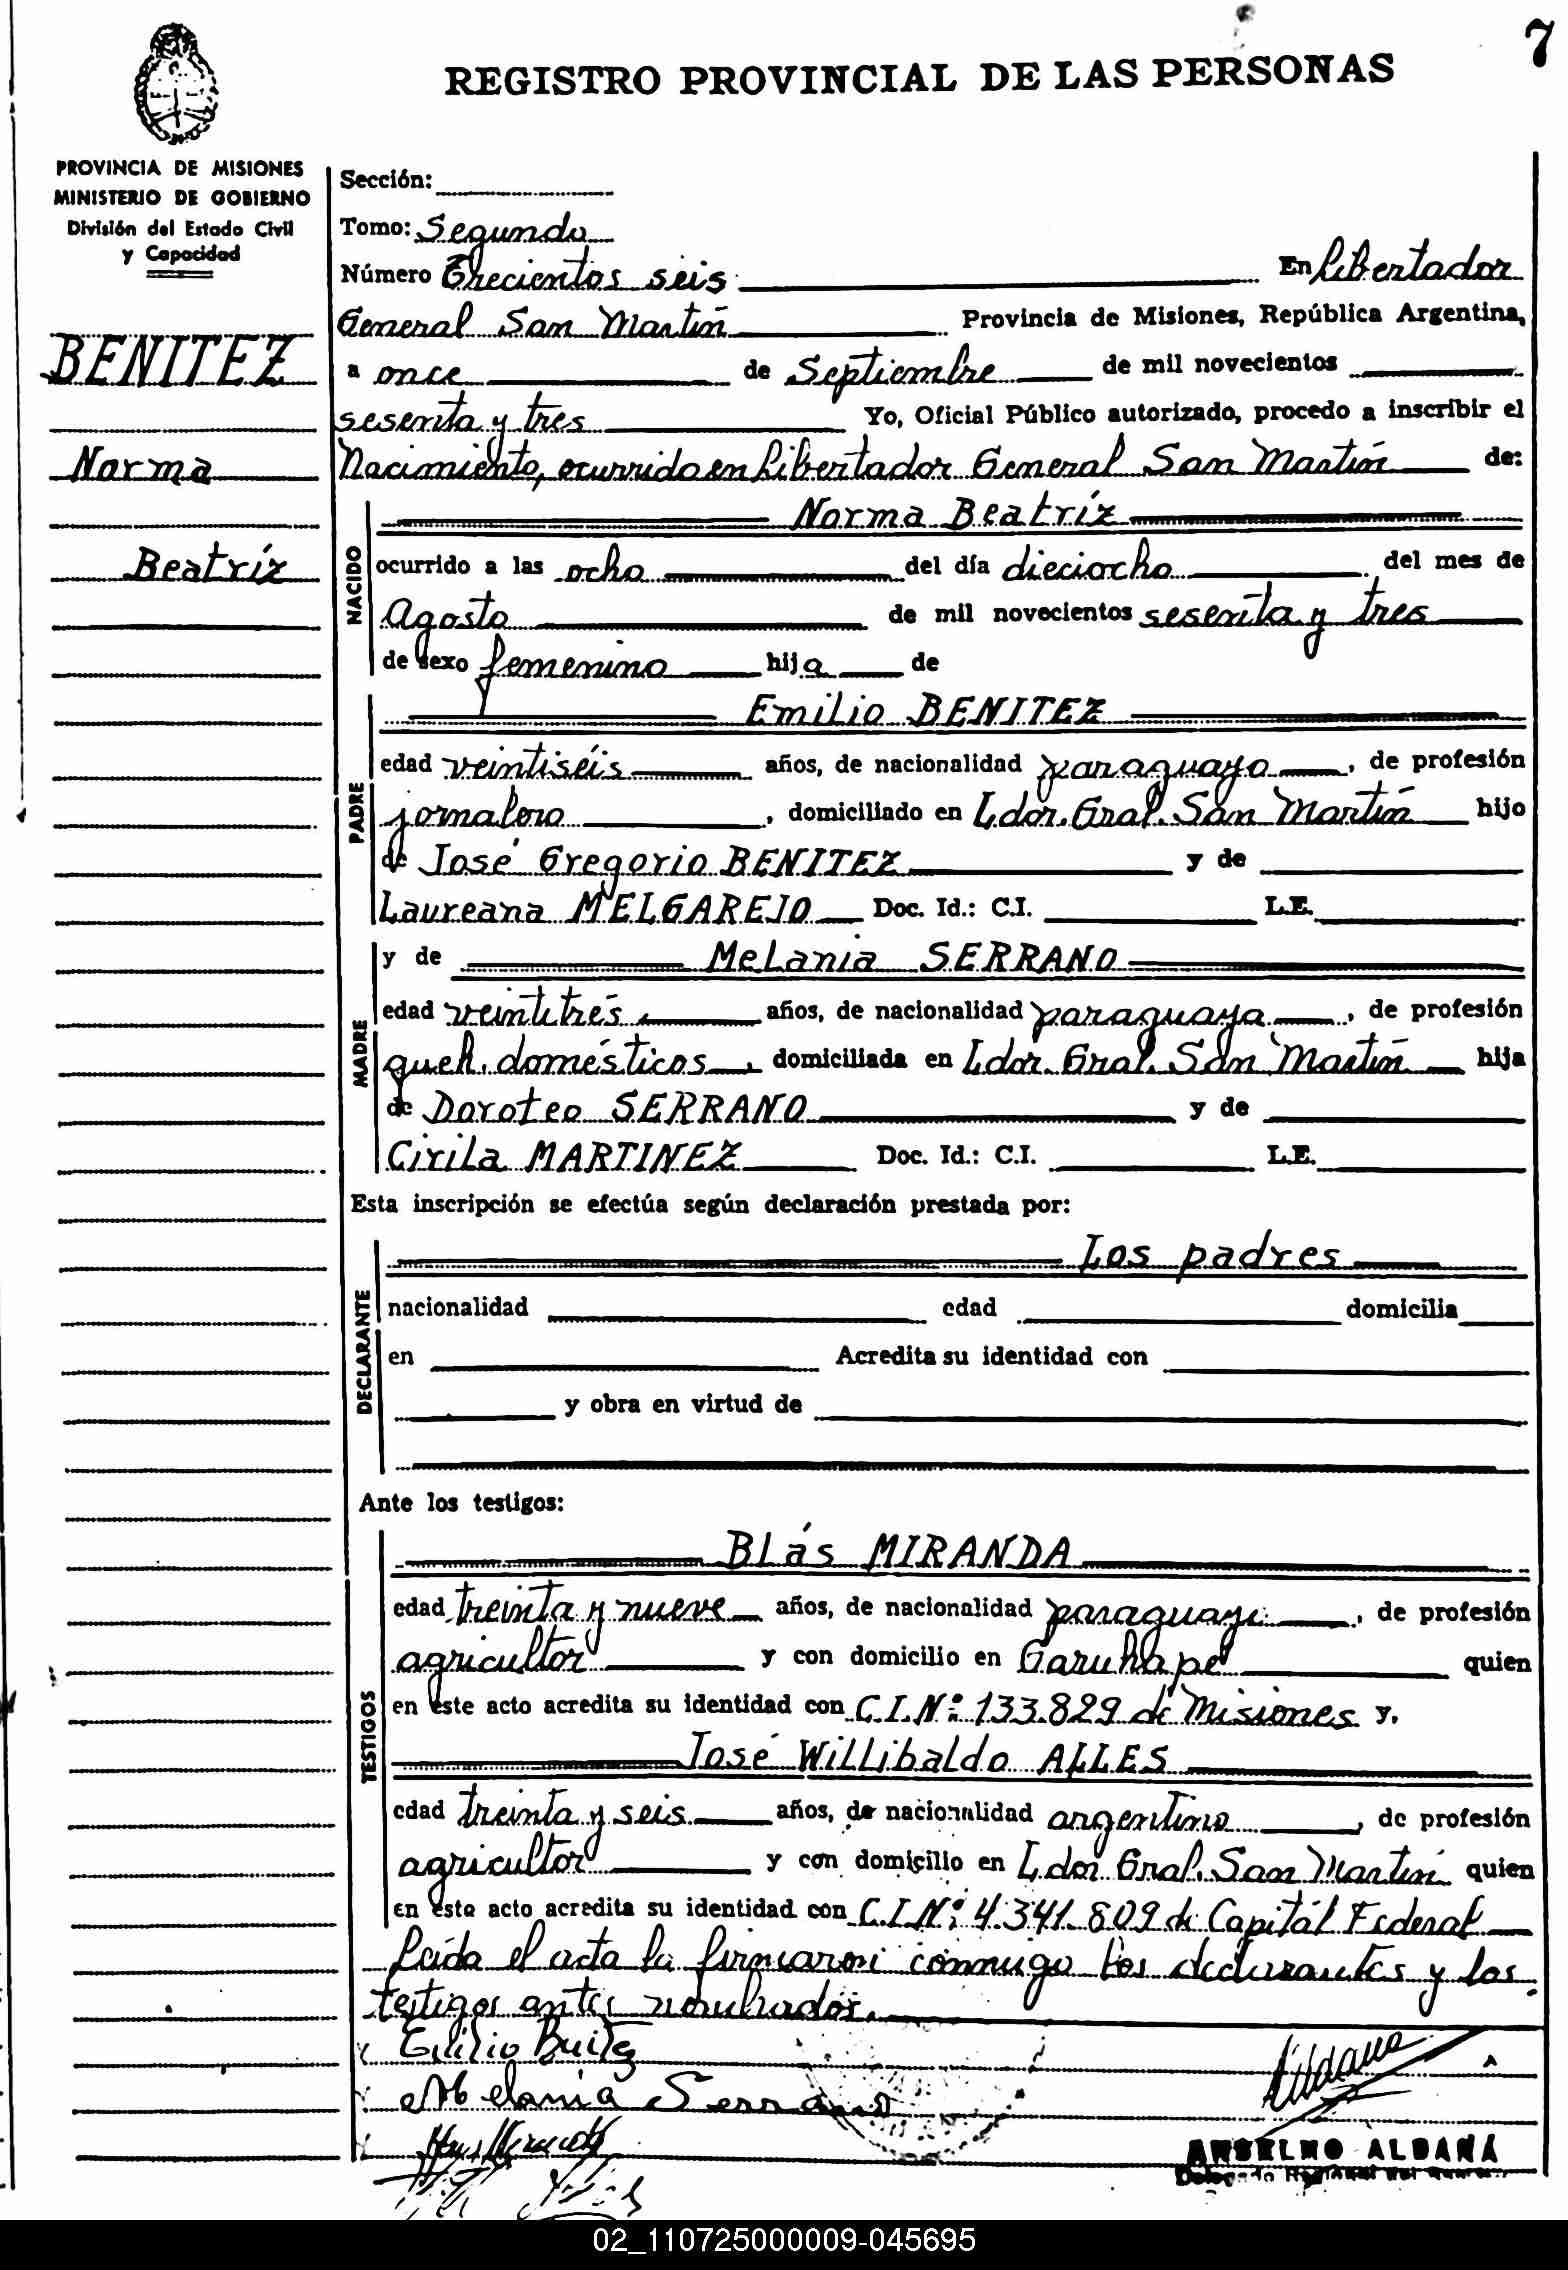 7
REGISTRO PROVINCIAL DE LAS PERSONAS
PROVINCIA DE MISIONES
MINISTERIO DE GOBIERNO
División del Estado Civil
y Capacidad
BENITEZ
Norma
Beatríz
Sección:
Tomo: Segundo
Número Trecientos seis En Libertador
General San Martín Provincia de Misiones, República Argentina,
a once de Septiembre de mil novecientos
sesenta y tres Yo, Oficial Público autorizado, procedo a inscribir el
Nacimiento, ocurrido en Libertador General San Martín de:
NACIDO
Norma Beatríz
ocurrido a las ocho del día dieciocho del mes de
Agosto de mil novecientos sesenta y tres
de sexo femenino hija de
PADRE
Emilio BENITEZ
edad veintiséis años, de nacionalidad paraguayo, de profesión
jornalero, domiciliado en Ldor. Gral. San Martín hijo
de José Gregorio BENITEZ y de
Laureana MELGAREJO Doc. Id.: C.I. L.E.
MADRE
y de Melania SERRANO
edad veintitrés años, de nacionalidad paraguaya, de profesión
queh. domésticos, domiciliada en Ldor. Gral. San Martín hija
de Doroteo SERRANO y de
Cirila MARTINEZ Doc. Id.: C.I. L.E.
Esta inscripción se efectúa según declaración prestada por:
DECLARANTE
Los padres
nacionalidad edad domicilia
en Acredita su identidad con
y obra en virtud de
Ante los testigos:
TESTIGOS
Blás MIRANDA
edad treinta y nueve años, de nacionalidad paraguayo, de profesión
agricultor y con domicilio en Garuhapé quien
en este acto acredita su identidad con C.I.Nº: 133.829 de Misiones y,
José Willibaldo ALLES
edad treinta y seis años, de nacionalidad argentino, de profesión
agricultor y con domicilio en Ldor. Gral. San Martín quien
en este acto acredita su identidad con C.I.Nº: 4.341.809 de Capitál Federal
Leída el acta la firmaron conmigo los declarantes y los
testigos antes nombrados.
Melania Serrano
Aldana
ANSELMO ALDANA
02_110725000009-045695